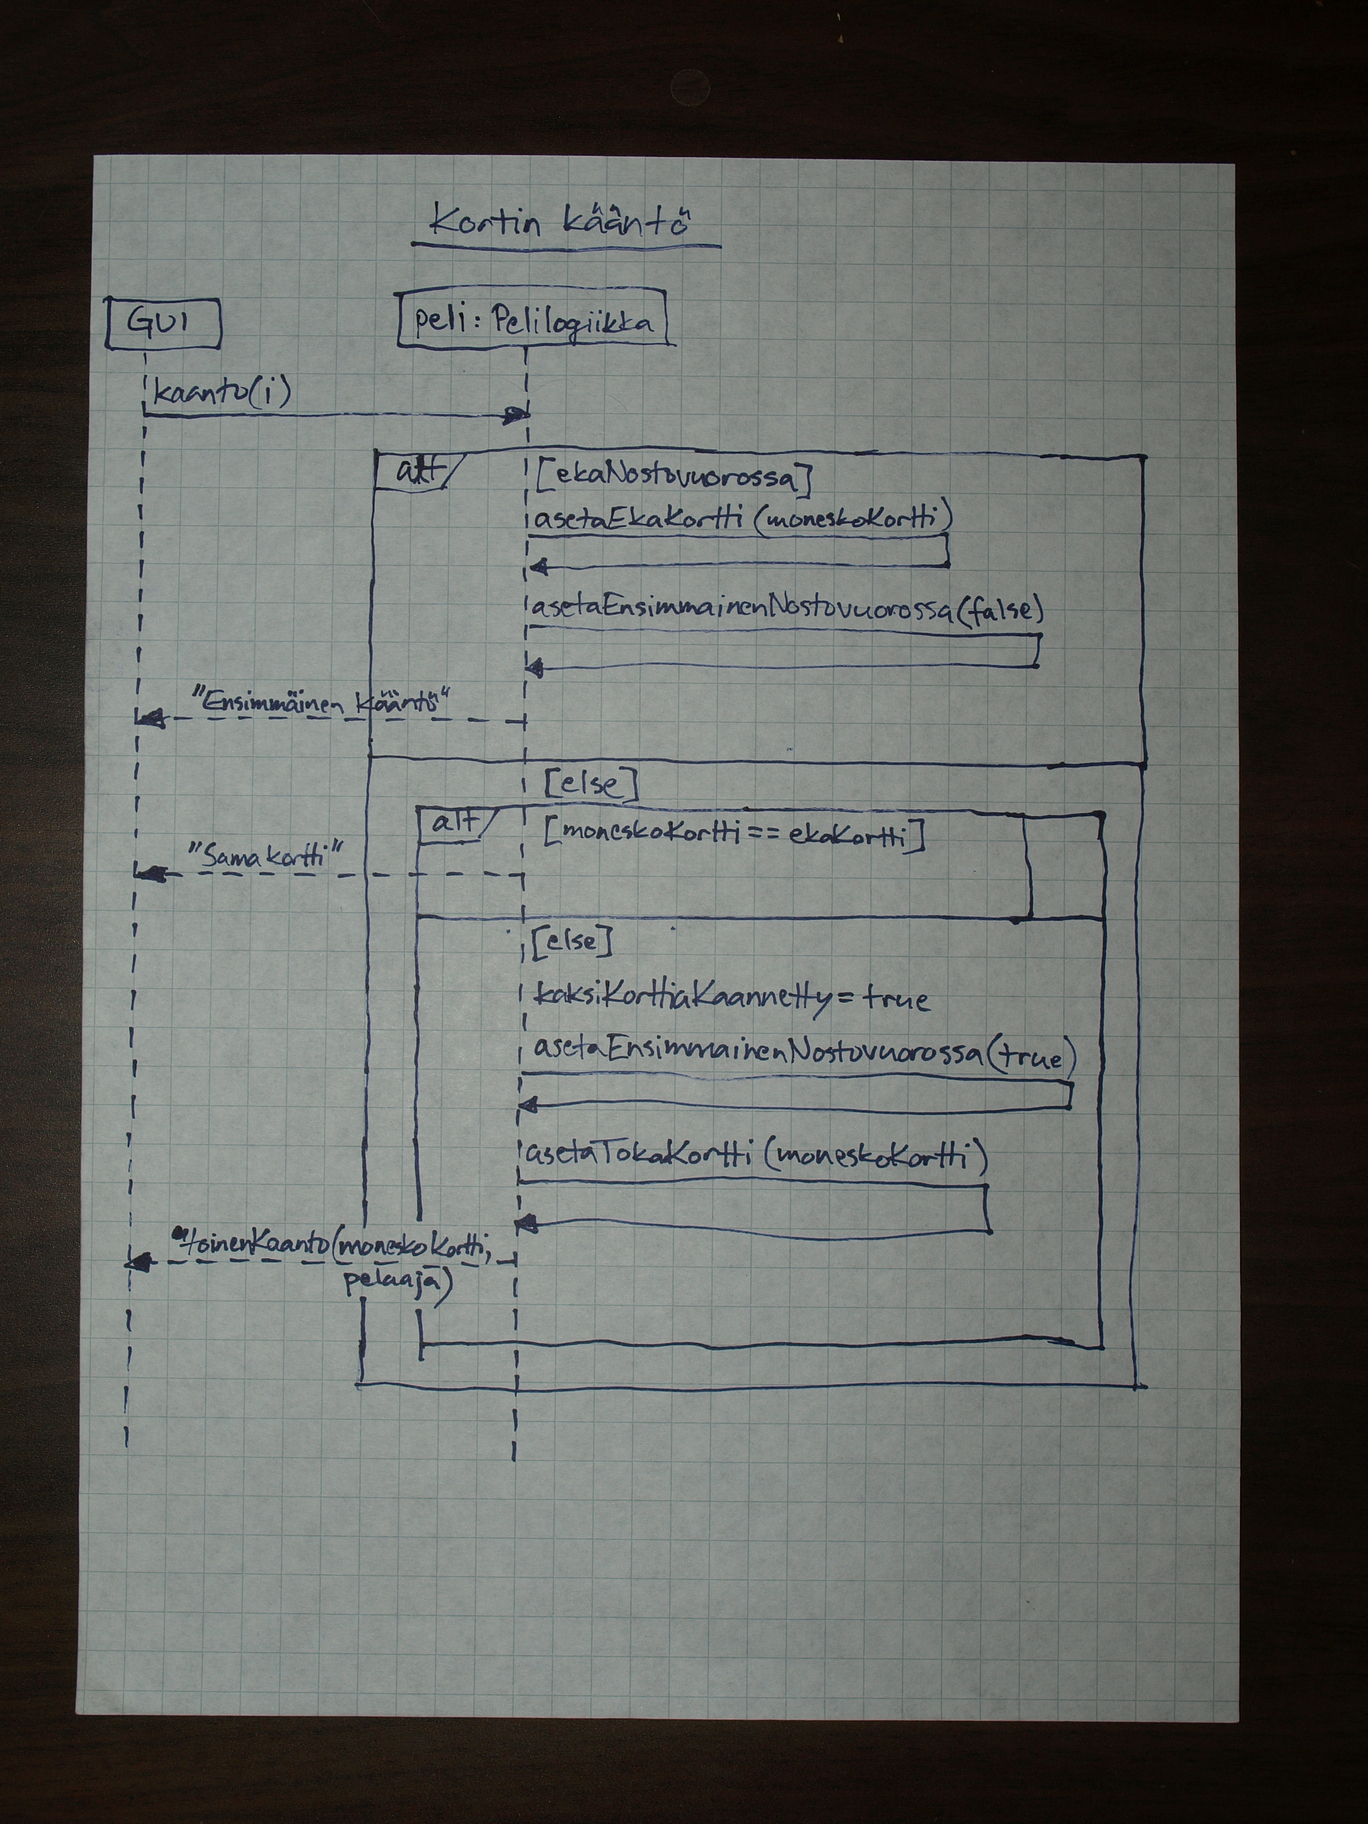 Kortin kääntö
GUI
peli: Pelilogiikka
kaanto(i)
alt
[ekaNostovuorossa]
asetaEkaKortti (moneskoKortti)
asetaEnsimmainenNostovuorossa(false)
"Ensimmäinen kääntö"
[else]
alt
[moneskoKortti == ekaKortti]
"Sama kortti"
[else]
kaksiKorttiaKaannetty = true
asetaEnsimmainenNostovuorossa(true)
asetaTokaKortti (moneskoKortti)
toinenKaanto(moneskoKortti,
pelaaja)